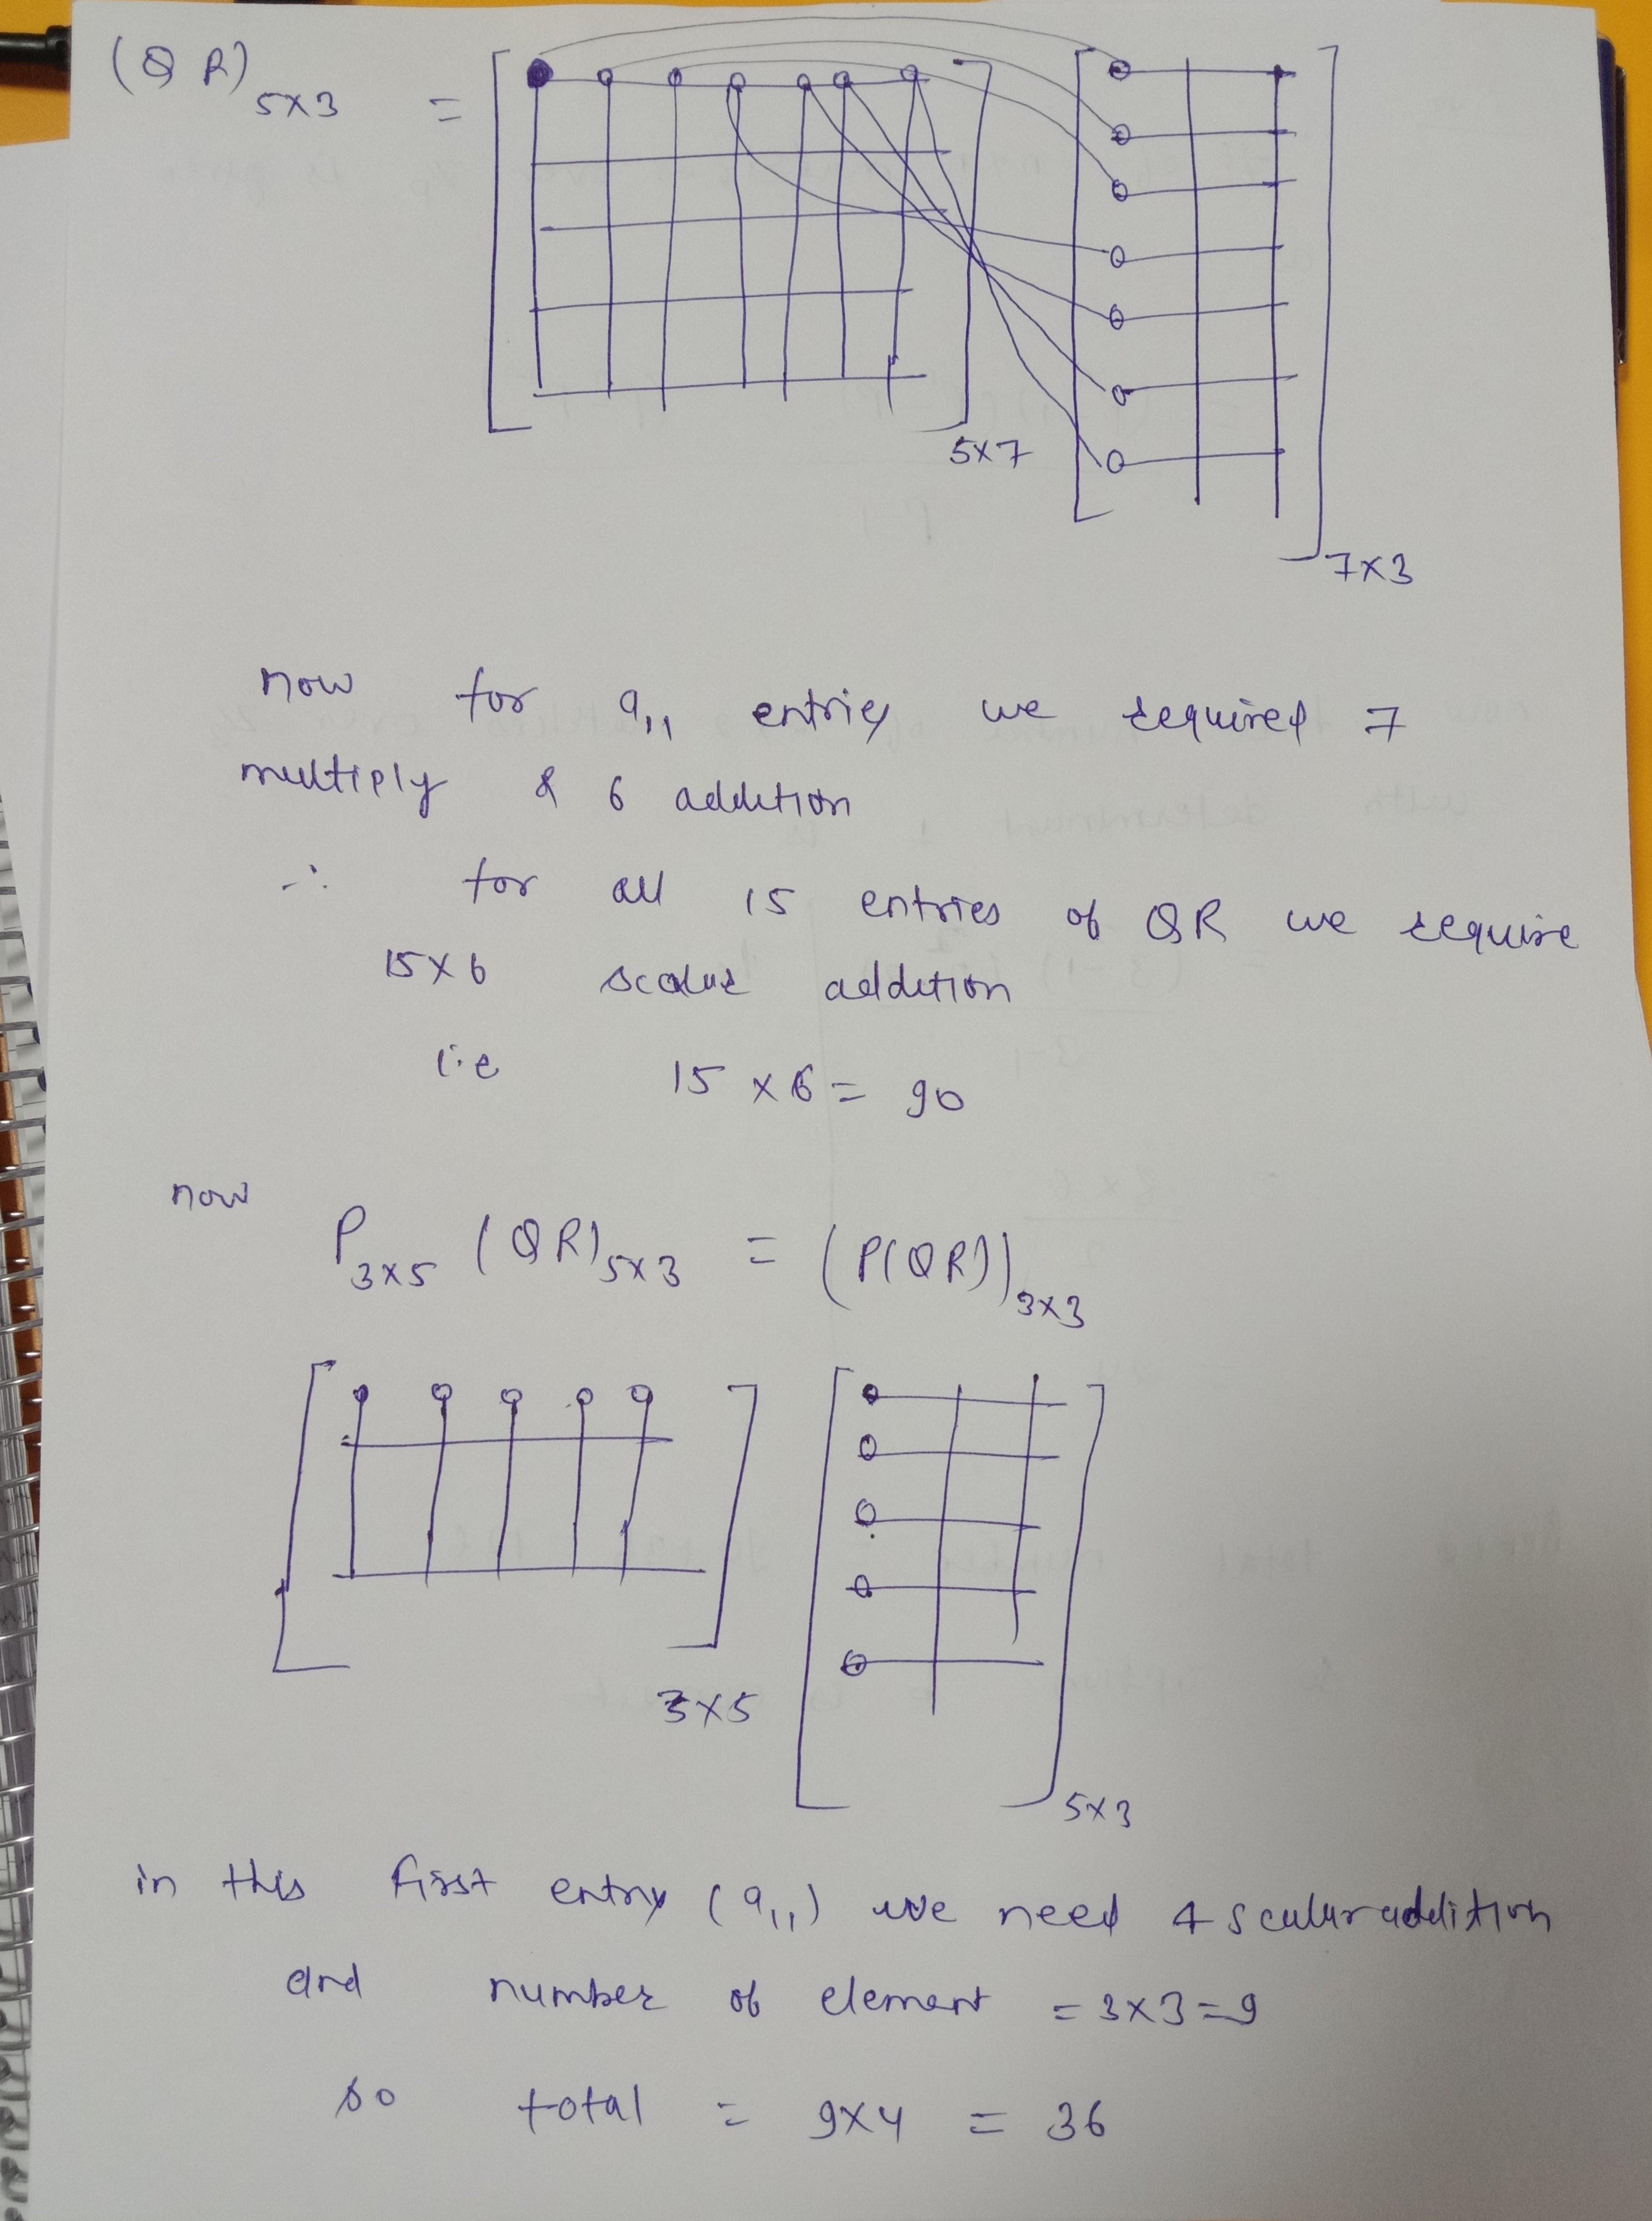 (QR)5×3 =
5×7
7×3
now for a11 entries we required 7
multiply & 6 addition
∴ for all 15 entries of QR we require
15×6 scalar addition
i.e 15 × 6 = 90
now
P3×5 (QR)5×3 = (P(QR))3×3
3×5
5×3
in this first entry (a11) we need 4 scalar addition
and number of element = 3×3=9
so total = 9×4 = 36